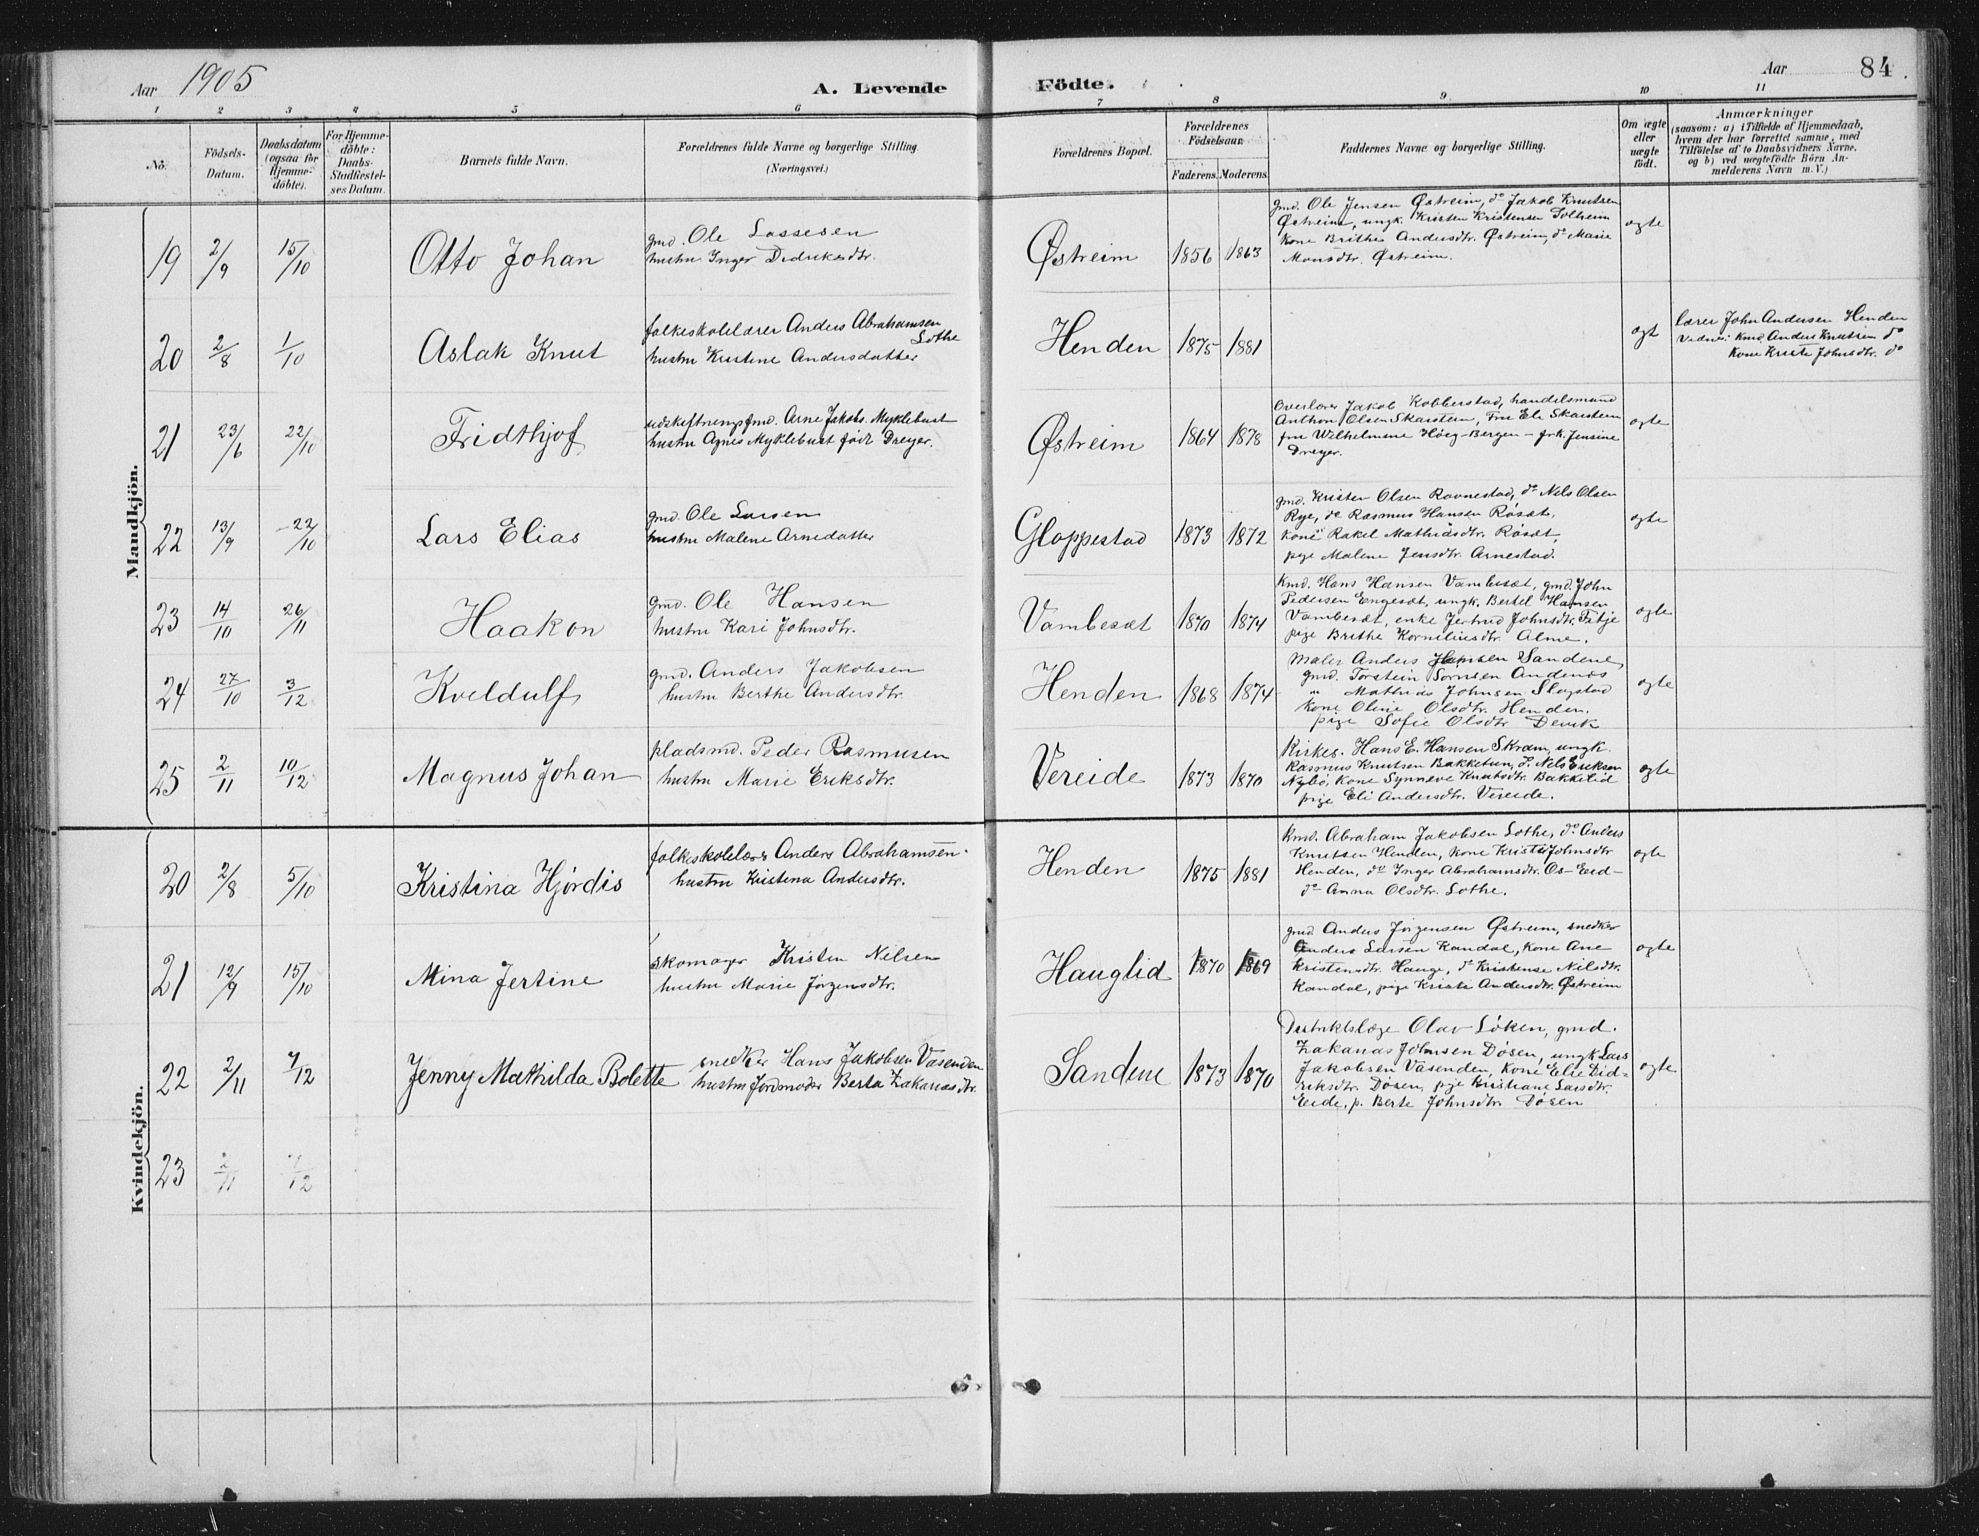 Aar 1905
A. Levende
Födte.
Aar
84.
1 2 3 4 5 6 7 8 9 10 11
No.
Födsels-Datum.
Daabsdatum (ogsaa for Hjemme-döbte).
For Hjemme-döbte: Daabs-Stadfæstel-ses Datum.
Barnets fulde Navn.
Forældrenes fulde Navne og borgerlige Stilling. (Næringsvei.)
Forældrenes Bopæl.
Forældrenes Födselsaar.
Faderens. Moderens.
Faddernes Navne og borgerlige Stilling.
Om ægte eller uægte födt.
Anmærkninger
(saasom: a) i Tilfælde af Hjemmedaab, hvem der har forrettet samme, med Tilföielse af to Daabsvidners Navne, og b) ved uægtefödte Börn An-melderens Navn m. V.)
Mandkjön.
19 2/9 15/10 Otto Johan
gmd. Ole Lassesen
hustru Inger Didriksdtr.
Østreim 1856 1863
gmd. Ole Jensen Østreim, do Jakob Knutsen
Østreim, ungk. Kristen Kristensen Solheim
kone Brithe Andersdtr. Østreim, do Marie
Monsdtr. Østreim.
ogte
20 2/8 1/10 Aslak Knut
folkeskolelærer Anders Abrahamsen
Lothe
hustru Kristine Andersdatter
Henden 1875 1881
ogt
lærer John Andersen Henden
Vidner: kmd. Anders Knutsen do
kone Kriste Johnsdtr. do
21 23/6 22/10 Fridthjof
udskiftningsfmd. Arne Jakobs. Myklebust
hustru Agnes Myklebust født Dreyer.
Østreim 1864 1878
Overlærer Jakob Kobberstad, handelsmand
Anthon Olsen Skarsten, Fru Ele Skarsten
fru Wilhelmine Høeg-Bergen - frk. Jensine
Dreyer.
ogte
22 13/9 22/10 Lars Elias
gmd. Ole Larsen
hustru Malene Arnedatter
Gloppestad 1873 1872
gmd. Kristen Olsen Ravnestad, do Nils Olsen
Rye, do Rasmus Hansen Røsæt,
kone Rakel Mathiasdtr. Røsæt,
pige Malene Jensdtr. Arnestad.
ogte
23 14/10 26/11 Haakon
gmd. Ole Hansen
hustru Kari Johnsdtr.
Vambesæt 1870 1874
kmd. Hans Hansen Vambesæt, gmd. John
Pedersen Engesæt, ungk. Bertel Hansen
Vambesæt, enke Jertrud Johnsdtr. Fitje
pige Brithe Korneliusdtr. Alme.
ogte
24 27/10 3/12 Kveldulf
gmd. Anders Jakobsen
hustru Berthe Andersdtr.
Henden 1868 1874
Maler Anders Hansen Sandene,
gmd. Torstein Sørnsen Andenæs
" Mathias Johnsen Slogstad
kone Oline Olsdtr. Henden.
pige Sofie Olsdtr Devik
ogte
25 2/11 10/12 Magnus Johan
pladsmd. Peder Rasmusen
hustru Marie Eriksdtr.
Vereide 1873 1870
Kirkes. Hans E. Hansen Skram, ungk.
Rasmus Knutsen Bakketun, do. Nils Eriksen
Nybø, kone Synneve Knutsdtr. Bakkelid
pige Eli Andersdtr. Vereide.
ogte
Kvindekjön.
20 2/8 5/10 Kristina Hjørdis
folkeskolelærer Anders Abrahamsen.
hustru Kristena Andersdtr.
Henden 1875 1881
kmd. Abraham Jakobsen Lothe, do Anders
Knutsen Henden, kone Kriste Johnsdtr
Henden, do Inger Abrahamsdtr. Os-Eid-
do Anna Olsdtr. Lothe.
ogte
21 12/9 15/10 Mina Jertine
skomager Kristen Nilsen
hustru Marie Jørgensdtr.
Hauglid 1870 1869
gmd Anders Jørgensen Østreim, snedker
Anders Larsen Kandal, kone Ane
Kristensdtr. Hauge, do Kristense Nilsdtr.
Kandal, pige Kriste Andersdtr. Østreim
ogte
22 2/11 7/12 Jenny Mathilda Bolette
snedker Hans Jakobsen Vasenden
hustru Jordmoder Berta Zakariasdtr.
Sandene 1873 1870
Distriktslæge Olav Løken, gmd.
Zakarias Johnsen Døsen, ungk Lars
Jakobsen Vasenden, kone Else Did-
riksdtr. Døsen, pige Kristiane Larsdtr.
Eide, p. Berte Johnsdtr. Døsen
ogte
23 2/11 7/12